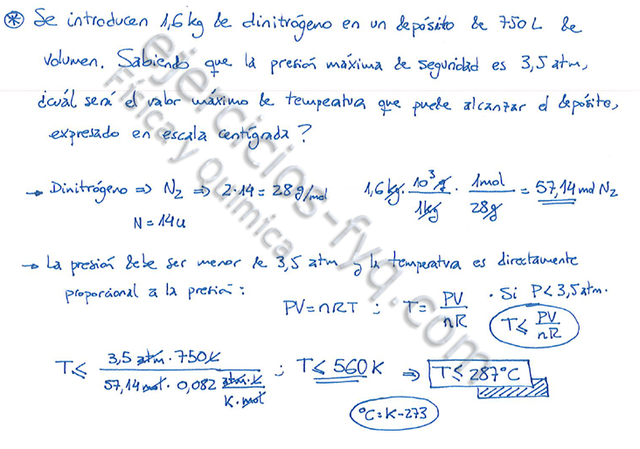 * Se introducen 1,6 kg de dinitrógeno en un depósito de 750 L de
volumen. Sabiendo que la presión máxima de seguridad es 3,5 atm,
¿cuál será el valor máximo de temperatura que puede alcanzar el depósito,
expresado en escala centígrada?
→ Dinitrógeno ⇒ N₂ ⇒ 2·14 = 28 g/mol 1,6 kg · 10³ g / 1 kg · 1 mol / 28 g = 57,14 mol N₂
N = 14u
→ La presión debe ser menor de 3,5 atm y la temperatura es directamente
proporcional a la presión: PV = nRT ; T = PV / nR · Si P < 3,5 atm.
T ≤ PV / nR
T ≤ 3,5 atm · 750 L / 57,14 mol · 0,082 atm·L / K·mol ; T ≤ 560 K ⇒ T ≤ 287 °C
°C = K - 273
ejercicios-fyq.com
Física y química